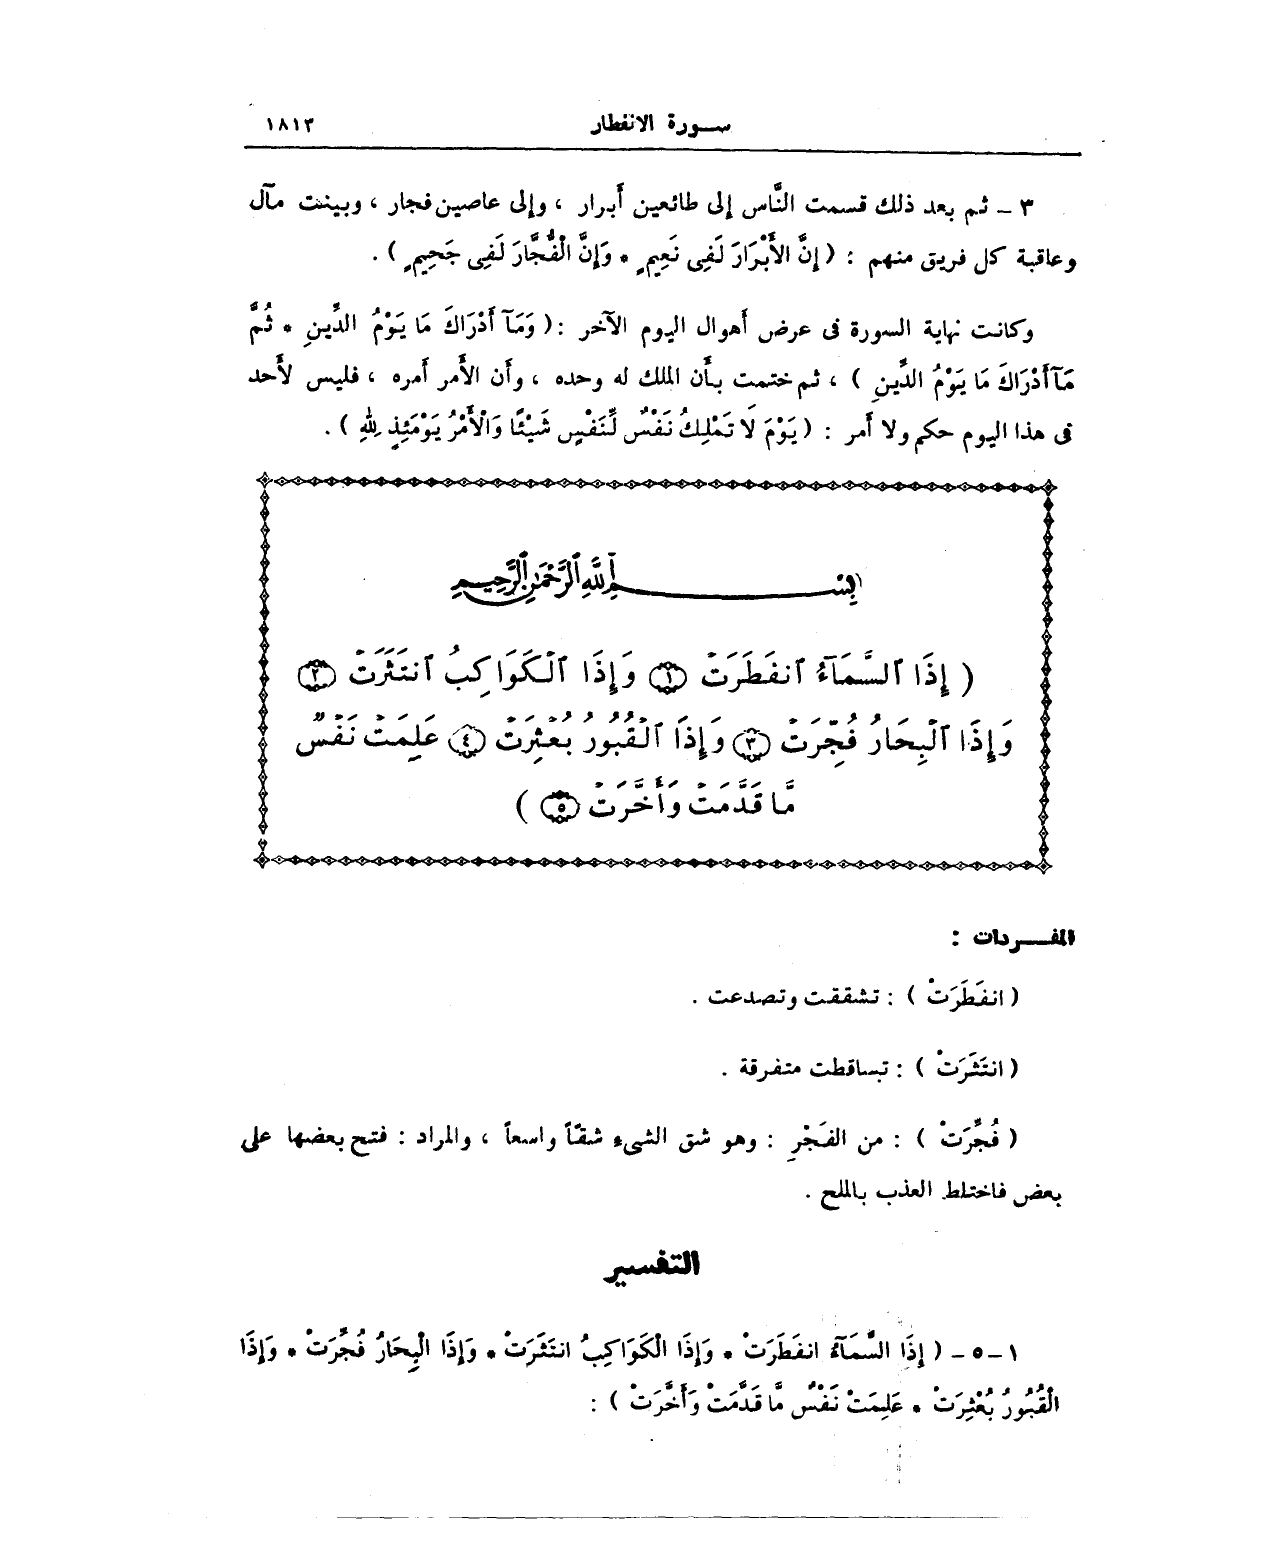 سورة الانفطار ١٨١٣
٣ ــ ثم بعد ذلك قسمت النَّاس إلى طائعين أَبرار ، وإلى عاصين فجار ، وبينت مآل
وعاقبة كل فريق منهم : ( إِنَّ الأَبْرَارَ لَفِى نَعِيمٍ * وَإِنَّ الْفُجَّارَ لَفِى جَحِيمٍ ) .
وكانت نهاية السورة فى عرض أَهوال اليوم الآخر : ( وَمَآ أَدْرَاكَ مَا يَوْمُ الدِّينِ * ثُمَّ
مَآ أَدْرَاكَ مَا يَوْمُ الدِّينِ ) ، ثم ختمت بأَن الملك له وحده ، وأَن الأَمر أَمره ، فليس لأَحد
فى هذا اليوم حكم ولا أمر : ( يَوْمَ لَا تَمْلِكُ نَفْسٌ لِّنَفْسٍ شَيْئًا وَالْأَمْرُ يَوْمَئِذٍ لِلهِ ) .
بِسْمِ ٱللَّهِ ٱلرَّحْمَٰنِ ٱلرَّحِيمِ
( إِذَا ٱلسَّمَآءُ ٱنفَطَرَتْ ١ وَإِذَا ٱلْكَوَاكِبُ ٱنتَثَرَتْ ٢
وَإِذَا ٱلْبِحَارُ فُجِّرَتْ ٣ وَإِذَا ٱلْقُبُورُ بُعْثِرَتْ ٤ عَلِمَتْ نَفْسٌ
مَّا قَدَّمَتْ وَأَخَّرَتْ ٥ )
المفـردات :
( انفَطَرَتْ ) : تشققت وتصدعت .
( انتَثَرَتْ ) : تساقطت متفرقة .
( فُجِّرَتْ ) : من الفَجْرِ : وهو شق الشىء شقًّا واسعاً ، والمراد : فتح بعضها على
بعض فاختلط العذب بالملح .
التفسير
١ ــ ٥ ــ ( إِذَا السَّمَآءُ انفَطَرَتْ * وَإِذَا الْكَوَاكِبُ انتَثَرَتْ * وَإِذَا الْبِحَارُ فُجِّرَتْ * وَإِذَا
الْقُبُورُ بُعْثِرَتْ * عَلِمَتْ نَفْسٌ مَّا قَدَّمَتْ وَأَخَّرَتْ ) :